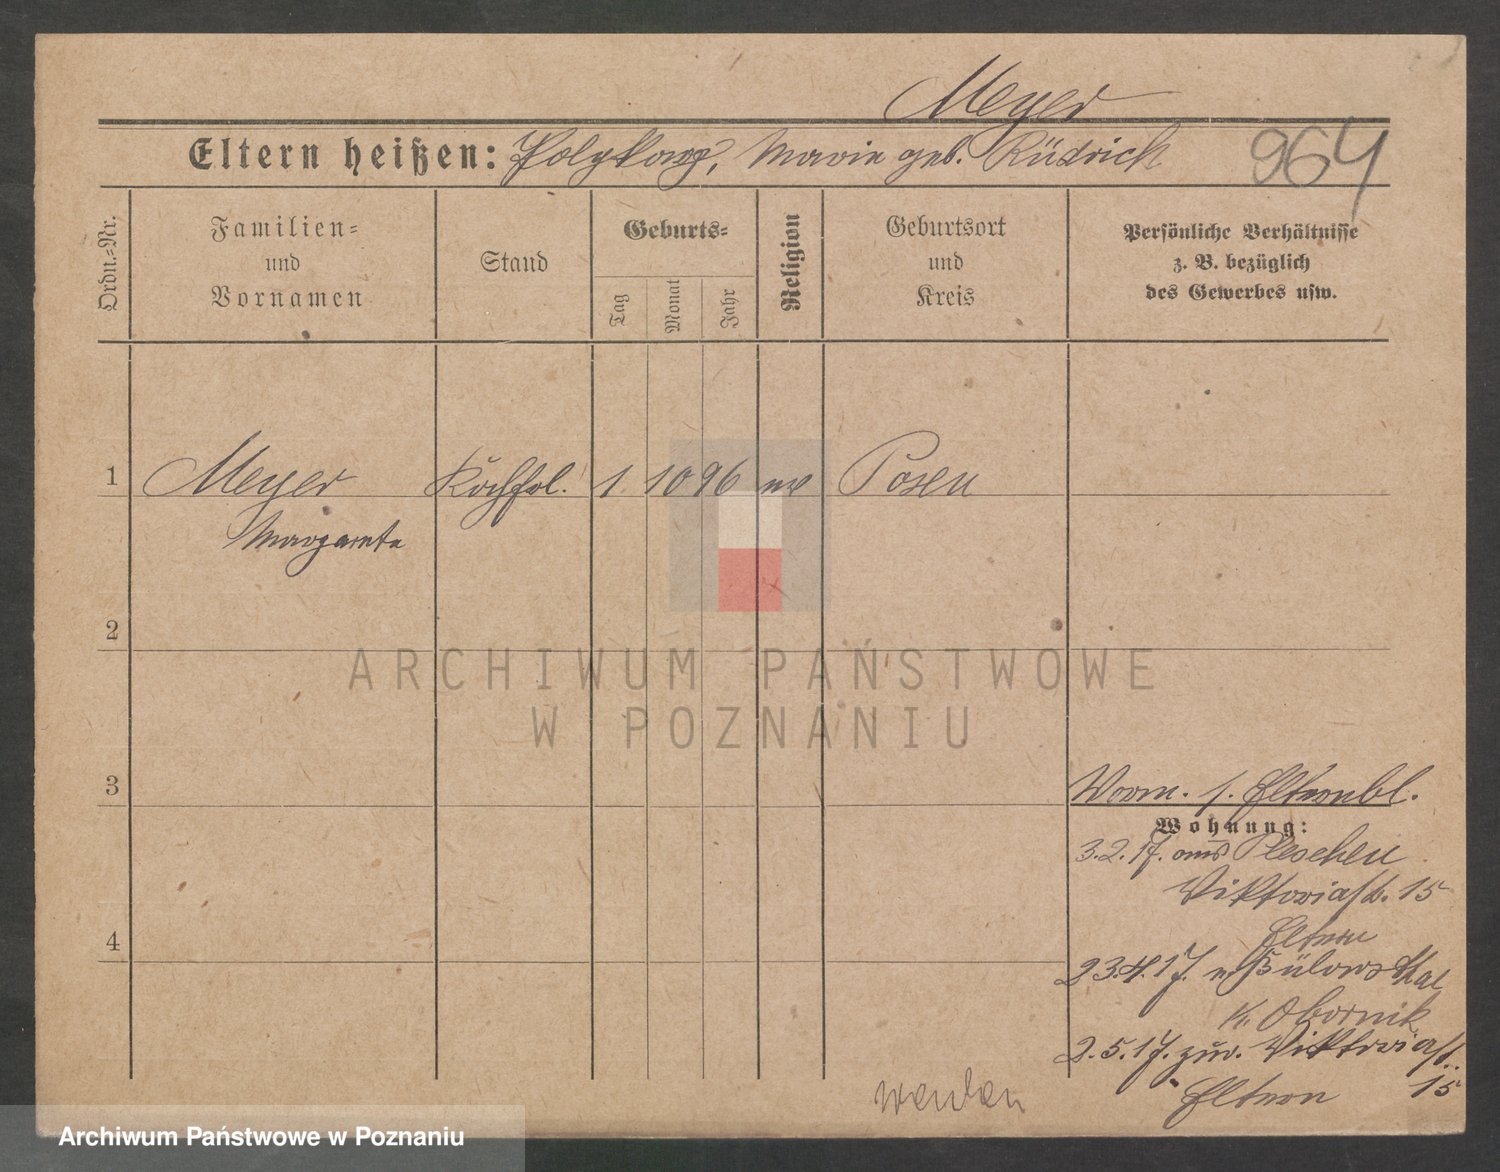 Meyer
Eltern heißen: Polykarp, Marie geb. Rüdrich
964
Ordn.-Nr.
Familien-
und
Vornamen
Stand
Geburts-
Tag
Monat
Jahr
Religion
Geburtsort
und
Kreis
Persönliche Verhältnisse
z. B. bezüglich
des Gewerbes usw.
1 Meyer Kochfrl. 1 10 96 ev Posen
Margarete
2
ARCHIWUM PAŃSTWOWE
W POZNANIU
3
Vorm. s. Elternbl.
Wohnung:
3.2.17. aus Pleschen
Viktoriastr. 15
4
Eltern
23.4.17. n. Bülowsthal
Kr. Obornik
2.5.17. zur. Viktoriastr.
15
Eltern
wenden
Archiwum Państwowe w Poznaniu